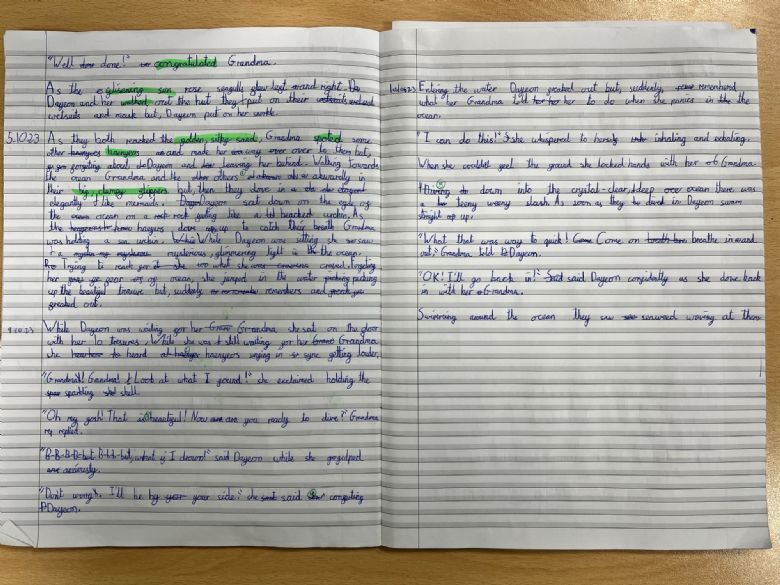 "Well done!" congratulated Grandma.
As the glistening sun rose seagulls flew left and right.
Dayeon and her walked and the hut they put on their
wetsuits and mask but, Dayeon put on her
5.10.23 As they both reached the golden, silky sand, Grandma spotted some
other haenyeos and made her way over to them but,
forgetting about Dayeon and leaving her behind. Walking towards
the ocean Grandma and the others akwardly in
their big, clumsy slippers but, then they dove in elegantly
elegantly like mermaids. Dayeon sat down on the edge of
the ocean on a rock feeling like a beached urchin. As
the haenyeos dove up to catch they breath Grandma
was holding a sea urchin. While Dayeon was sitting she saw
a mysterious, glimmering light in the ocean.
Trying to reach for it she what she was craved. forgeting
her fear of ocean, she jumped in the water picking
up the beautiful treasure but, suddenly remembers and
freaked out.
9.10.23 While Dayeon was waiting for her Grandma she sat on the floor
with her 10 tresures. While she was still waiting for her Grandma
she heard haenyeos singing in sync getting louder.
"Grandma! Grandma! Look at what I found!" she exclaimed holding the
sparkling shell.
"Oh my gosh! That is beautiful! Now are you ready to dive?" Grandma
replied.
"B-B-B-B-but, B-b-b-but, what if I drown!" said Dayeon while she
anxiously.
"Don't worry. I'll be by your side." she said comforting
Dayeon.
Entering the water Dayeon freaked out but, suddenly, remembered
what her Grandma told her to do when she panics in the
ocean.
"I can do this!" She whispered to herself inhaling and exhaling.
When she couldn't feel the ground she locked hands with her Grandma.
down into the crystal-clear, deep ocean there was
a teeny weeny slash. As soon as they dived in Dayeon swam
straight up.
"What that was way to quick! Come on breathe in and
out," Grandma told Dayeon.
"OK! I'll go back in!" said Dayeon confidently as she dove back
in with her Grandma.
Swimming around the ocean they saw seaweed waving at them